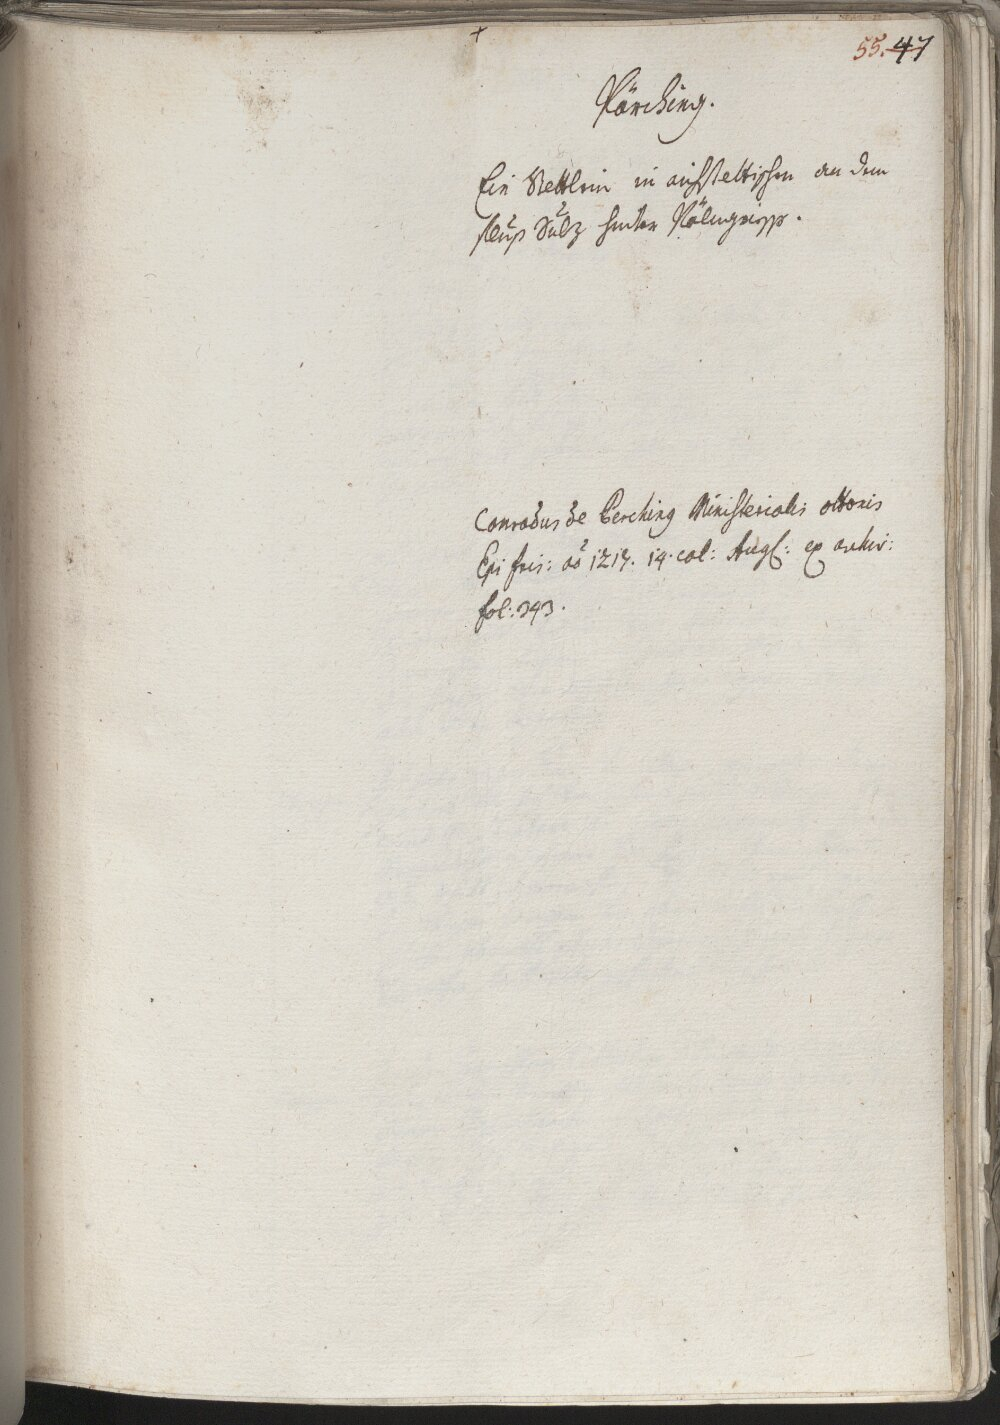 55. 47
Pärching.
Ein Stettlein in aichstettischen an dem
fluß Sulz hinter Pölngrieß.
Conradus de Perching Ministerialis ottonis
Epi fris: aõ 1217. 14. cal: Augß: ex archiv:
fol: 343.